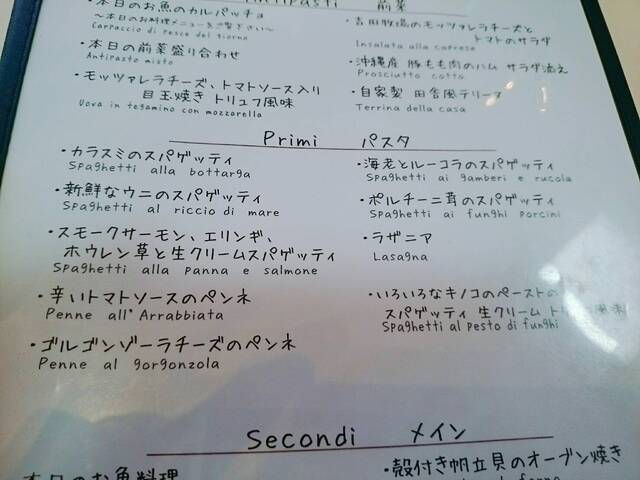 Antipasti 前菜
・本日のお魚のカルパッチョ
～本日のお料理メニューをご覧下さい～
Carpaccio di pesce del giorno
・本日の前菜盛り合わせ
Antipasto misto
・モッツァレラチーズ、トマトソース入り
目玉焼き トリュフ風味
Uova in tegamino con mozzarella
・吉田牧場のモッツァレラチーズと
トマトのサラダ
Insalata alla caprese
・沖縄産 豚もも肉のハム サラダ添え
Prosciutto cotto
・自家製 田舎風テリーヌ
Terrina della casa
Primi パスタ
・カラスミのスパゲッティ
Spaghetti alla bottarga
・新鮮なウニのスパゲッティ
Spaghetti al riccio di mare
・スモークサーモン、エリンギ、
ホウレン草と生クリームスパゲッティ
Spaghetti alla panna e salmone
・辛いトマトソースのペンネ
Penne all' Arrabbiata
・ゴルゴンゾーラチーズのペンネ
Penne al gorgonzola
・海老とルーコラのスパゲッティ
Spaghetti ai gamberi e rucola
・ポルチーニ茸のスパゲッティ
Spaghetti ai funghi porcini
・ラザニア
Lasagna
・いろいろなキノコのペーストの
スパゲッティ 生クリーム ト 風味
Spaghetti al pesto di funghi
Secondi メイン
本日のお魚料理
・殻付き帆立貝のオーブン焼き
al forno